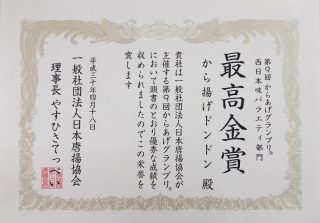 第9回 からあげグランプリ®
西日本味バラエティ部門
最高金賞
から揚げドンドン 殿
貴社は一般社団法人日本唐揚協会が
主催する第9回からあげグランプリ®
において頭書のとおり優秀な成績を
収められましたのでこの栄誉を
賞します
平成三十年四月十八日
一般社団法人日本唐揚協会
理事長 やすひさてっぺい